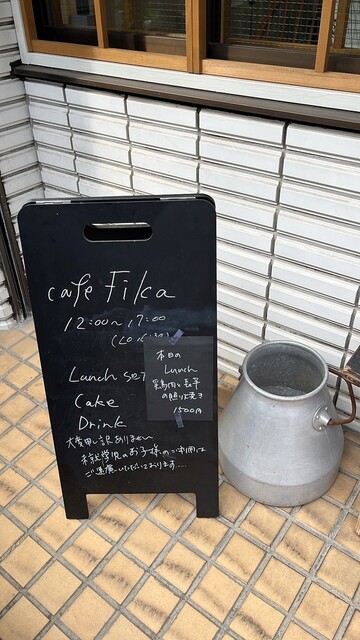 cafe Fika
12:00~17:00
(LO 16:30)
Lunch set
Cake
Drink
大変申し訳ありません
未就学児のお子様のご利用は
ご遠慮いただいております...
本日の
Lunch
鶏肉と長芋
の照り焼き
1500円